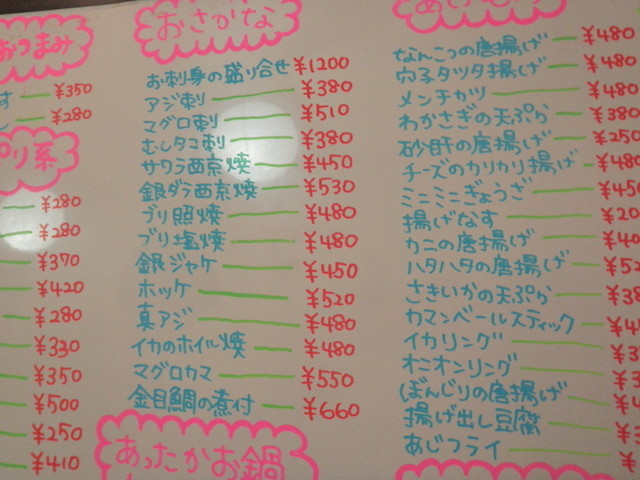 おつまみ
¥350
¥280
リ系
¥280
¥280
¥370
¥420
¥280
¥330
¥350
¥500
¥250
¥410
おさかな
お刺身の盛り合せ ¥1200
アジ刺 ¥380
マグロ刺 ¥510
むしタコ刺 ¥380
サワラ西京焼 ¥450
銀ダラ西京焼 ¥530
ブリ照焼 ¥480
ブリ塩焼 ¥480
銀ジャケ ¥450
ホッケ ¥520
真アジ ¥480
イカのホイル焼 ¥480
マグロカマ ¥550
金目鯛の煮付 ¥660
あったかお鍋
なんこつの唐揚げ ¥480
穴子タツタ揚げ ¥480
メンチカツ ¥480
わかさぎの天ぷら ¥380
砂肝の唐揚げ ¥250
チーズのカリカリ揚げ ¥480
ミニミニぎょうざ ¥450
揚げなす ¥20
カニの唐揚げ ¥40
ハタハタの唐揚げ ¥52
さきいかの天ぷら ¥38
カマンベールスティック ¥4
イカリング ¥3
オニオンリング ¥3
ぼんじりの唐揚げ ¥
揚げ出し豆腐 ¥
あじフライ ¥